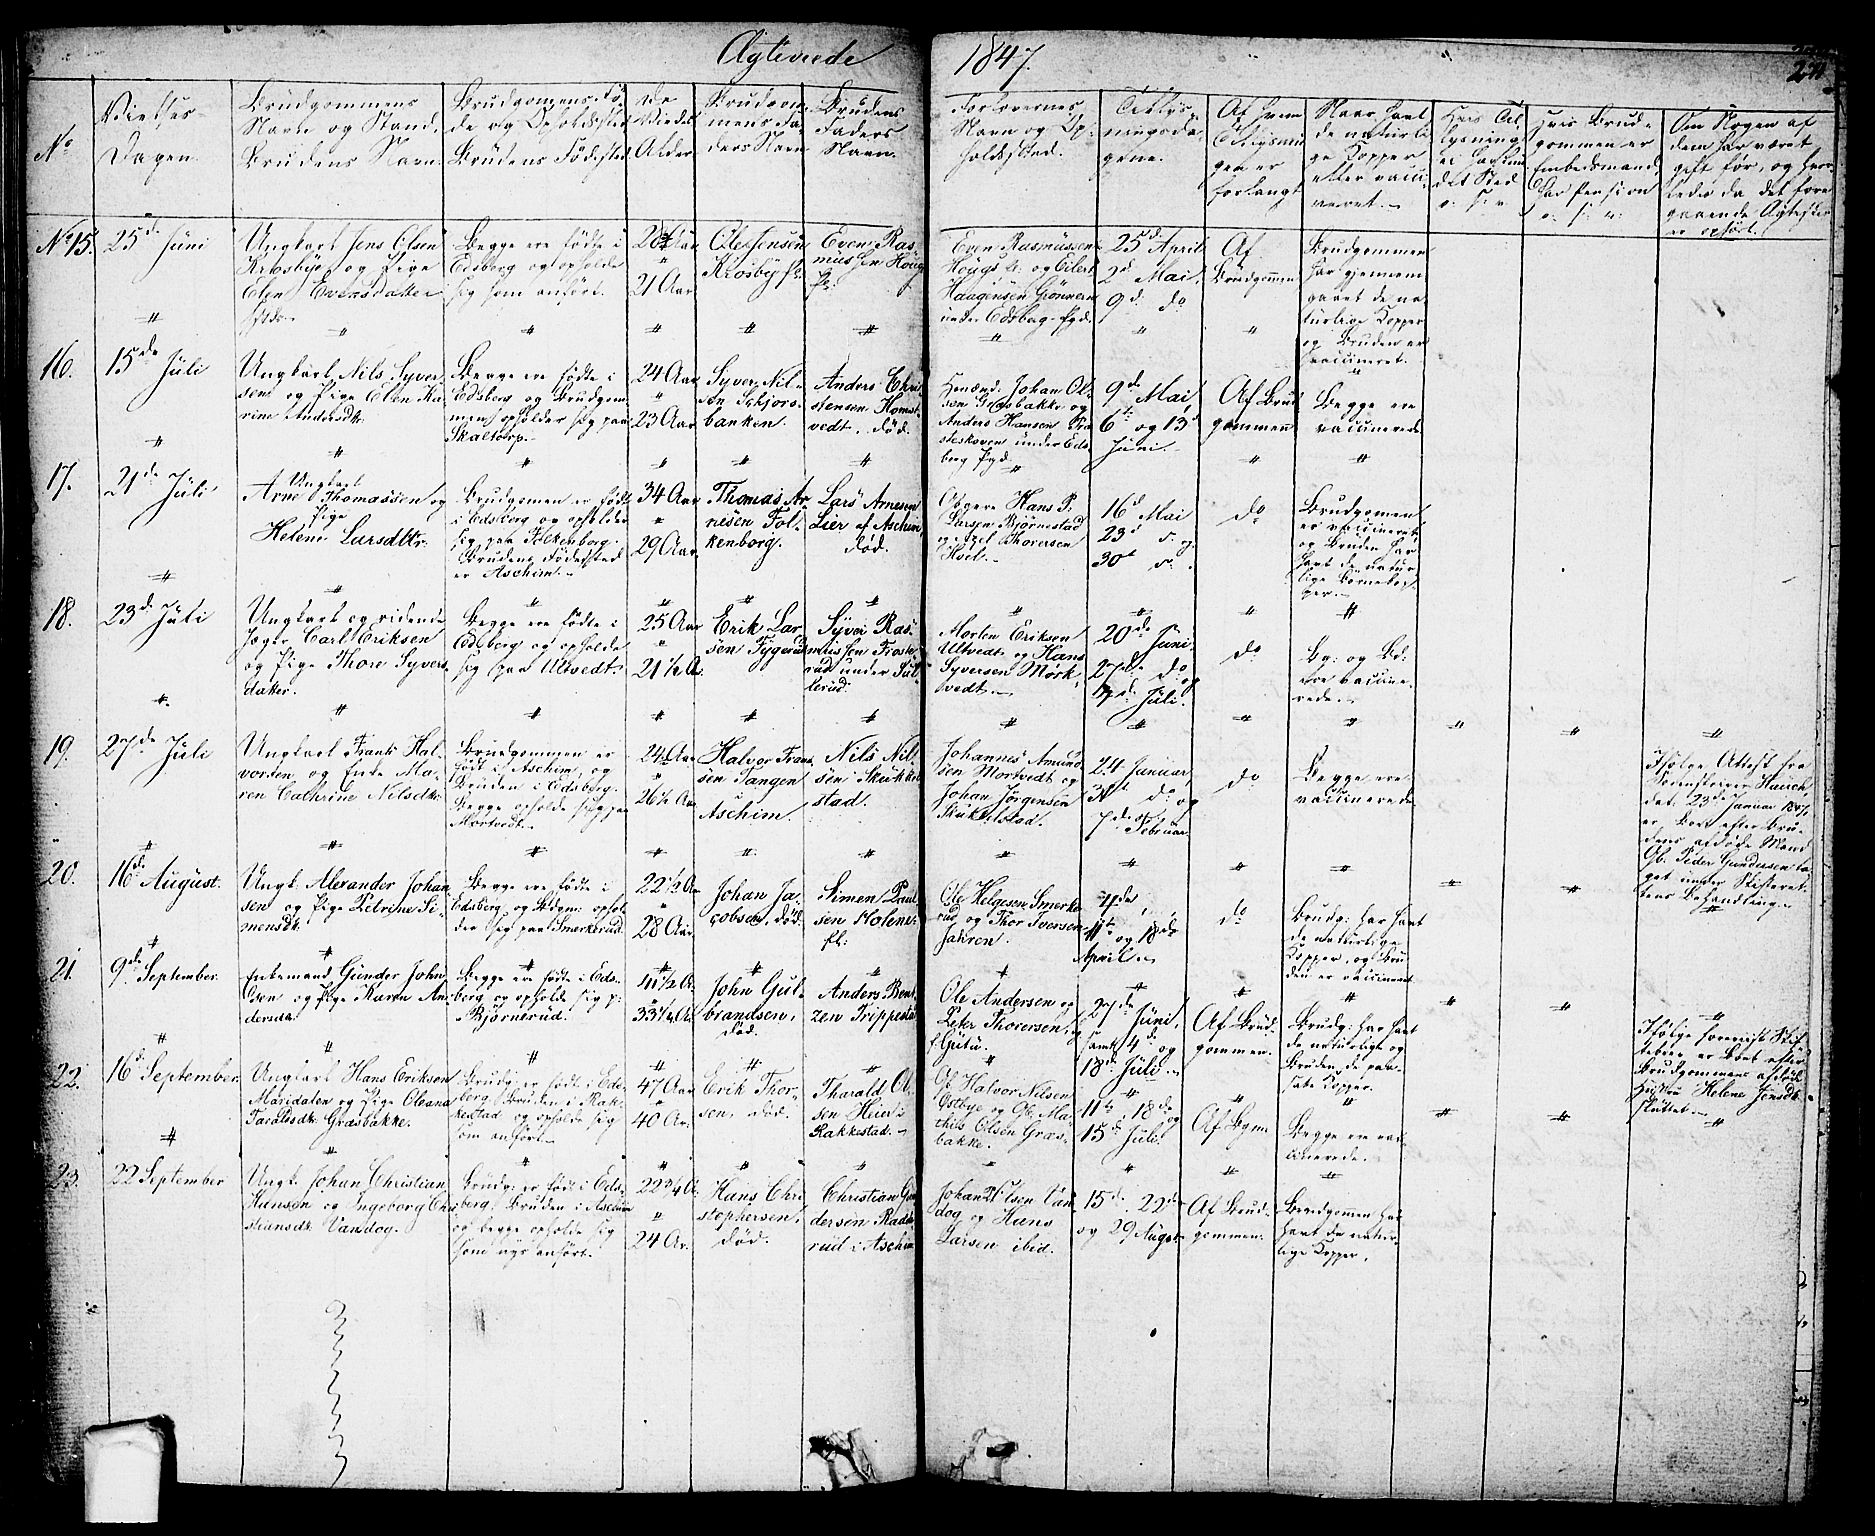 Ægteviede
1847.
No
Vielses-
Dagen.
Brudgommens
Navn og Stand,
Brudens Navn.
Brudgomens Fø-
de og Opholdssted
Brudens Fødested
De
Viedes
Alder
Brudgom-
mens Fa-
ders Navn
Brudens
Faders
Navn.
Forlovernes
Navn og Op-
holdssted.
Tillys-
ningsda-
gene.
Af hvem
Tillysnin-
gen er
forlangt
Naar havt
de naturli-
ge Kopper
eller vacci-
neret.
Hvis Brud-
gommen er
Embedsmand,
har Pension
Om Nogen af
dem har været
gift før, og hvor-
ledes da det fore-
gaaende Ægteskab
er ophørt.
No 15.
25de Juni
Ungkarl Jens Olsen
Krosbye og Pige
Elen Evensdatter
Begge ere fødte i
Edsberg og opholde
sig som anført.
21 Aar
Ole Jensen
Krosby
Even Ras-
mussen Houg
Even Rasmussen
Houg og Eilert
Haagensen Grønnern
under Edsberg Pgd.
25de April
2d Mai
9d do
Af
Brudgommen
Brudgommen
har gjennem-
gaaet de na-
turlige Kopper
og Bruden er
vaccineret.
16.
15de Juli
Ungkarl Nils Syver-
sen og Pige Elen Ka-
rine Andersdtr
Begge ere fødte i
Edsberg og Brudgom-
men opholder sig paa
Skaltorp.
24 Aar
23 Aar
Syver Nil-
sen Skjors-
banken.
Anders Chri-
stensen Homst-
vedt, død.
Johan Ol-
sen Græsbakke og
Anders Hansen
under Eds-
berg Pgd.
9de Mai,
6te og 13d
Juni.
Af Brud-
gommen
Begge ere
vaccinerede
17.
21de Juli
Ungkarl
Arne Thomassen og
Pige
Helene Larsdtr.
Brudgomen er født
i Edsberg og opholder
sig paa Folkenborg.
Brudens Fødested
er Aschim.
34 Aar
29 Aar
Thomas Ar-
nesen Fol-
kenborg.
Lars Arnesen
Lier af Aschim
død.
Hans P.
Larsen Bjørnestad
og Axel Thoresen
Hoel.
16d Mai
23d s. og
30d s.
do
Brudgomen
er vaccineret,
og Bruden har
havt de natur-
lige Børnekop-
per.
18.
23d Juli
Ungkarl og ridende
Jæger Carl Eriksen
og Pige Thore Syvers-
datter.
Begge ere fødte i
Edsberg og opholde
sig paa Ultvedt.
25 Aar
21 1/2 A.
Erik Lar-
sen Tygerud
Syver Ras-
mussen Froste-
rud under Ful-
lerud.
Morten Eriksen
Ultvedt og Hans
Syversen Mørk-
vedt.
20de Juni,
27de do og
Juli.
do
Bg: og Bd:
ere vaccine-
rede.
19.
27de Juli
Ungkarl Frants Hal-
vorsen og Enke Ma-
ren Cathrine Nilsdtr
Brudgommen er
født i Aschim, og
Bruden i Edsberg.
Begge opholde sig paa
Mortvedt.
24 Aar
26 1/2 Aar
Halvor Frants-
sen Tangen
Aschim.
Nils Nil-
sen Skukkel-
stad.
Johannes Amund-
sen Mortvedt og
Johan Jørgensen
Skukelstad.
24 Januar,
31te do og
7de Februar
do
Begge ere
vaccinerede
Ifølge Attest fra
Sorenskriver Hauch
det. 23de Januar 1847,
er Boet efter Bru-
dens afdøde Mand
Gb. Peder Gundersen ta-
get under Skifteret-
tens Behandling.
20.
16de August.
Ungk. Alexander Johan-
sen og Pige Petrine Si-
mensdtr
Begge ere fødte i
Edsberg og Bdgm: ophol-
der sig paa Smerkerud.
22 1/2 Aar
28 Aar
Johan Ja-
cobsen, død.
Simen Poul-
sen Holene
Ole Helgesen Smerke-
rud og Thor Iversen
Jahren.
11te og 18de
April
do
Brudg: har havt
de naturlige
Kopper, og Bru-
den er vaccineret
21.
9de September
Enkemand Gunder John-
sen og Pige Karen An-
dersdtr
Begge ere fødte i Eds-
berg og opholde sig p:
Bjørnerud.
41 1/2 A.
33 1/4 A.
John Gul-
brandsen,
død.
Anders Bent-
zen Trippestad
Ole Andersen og
Peter Thoresen,
Gutu.
27de Juni,
samt 4de og
18de Juli
Af Brud-
gommen.
Brudg: har havt
de naturlige og
Bruden, de paa-
satte Kopper.
Ifølge forevist Skif-
tebrev er Boet efter
Brudgommens afdøde
Hustru Helene Jensdtr
sluttet.
22.
16d September
Ungkarl Hans Eriksen
Maridalen og Pige Oleana
Taraldsdtr Græsbakke.
Brudg: er født i Eds-
berg, Bruden i Rak-
kestad og opholde sig
som anført
47 Aar
40 Ar.
Erik Thor-
sen, død.
Tharald Ol-
sen Heier i
Rakkestad.
Gb. Halvor Nilsen
Østbye og Gb. Ma-
this Olsen Græs-
bakke.
11te, 18de og
15d Juli.
Af Bgm
Begge ere vac-
cinerede.
23.
22 September
Ungk. Johan Christian
Hansen og Ingeborg Chri-
stiansdtr Vandog.
Brudg: er født i Eds-
berg, Bruden i Aschim
og begge opholde sig
som nys anført.
22 3/4 A.
24 Ar.
Hans Chri-
stophersen,
død.
Christian Gun-
dersen Rads-
rud i Aschim
Johan Olsen Van-
dog og Hans
Larsen ibid.
15d, 22de
og 29 August
Af Brud-
gommen.
Brudgomen har
havt de natur-
lige Kopper.